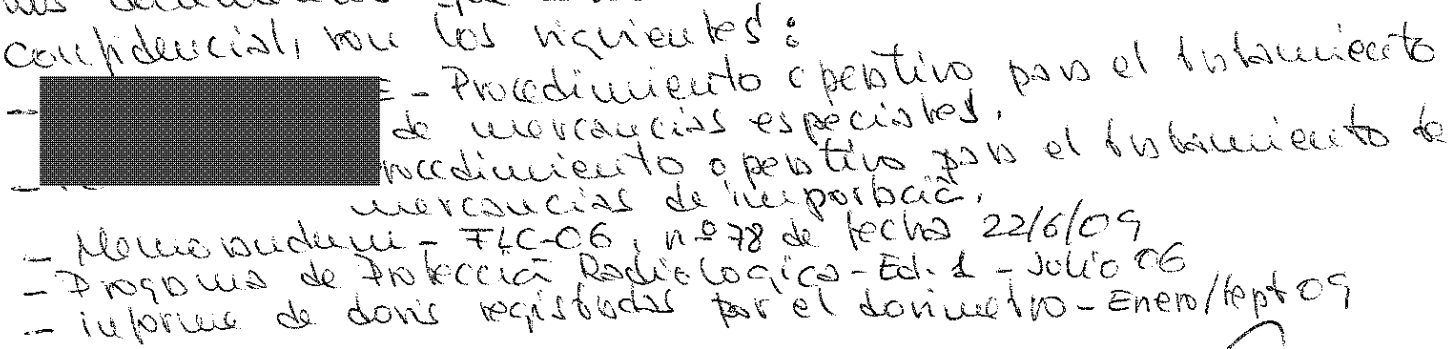 confidencial, son los siguientes:
- E - Procedimiento operativo para el tratamiento
de mercancías especiales.
- rocedimiento operativo para el tratamiento de
mercancías de importació.
- Memorandum - FLC-06, nº 78 de fecha 22/6/09
- Programa de Protecció Radiologica - Ed. 1 - Julio 06
- informe de dosis registradas por el dosimetro - Enero/sept 09